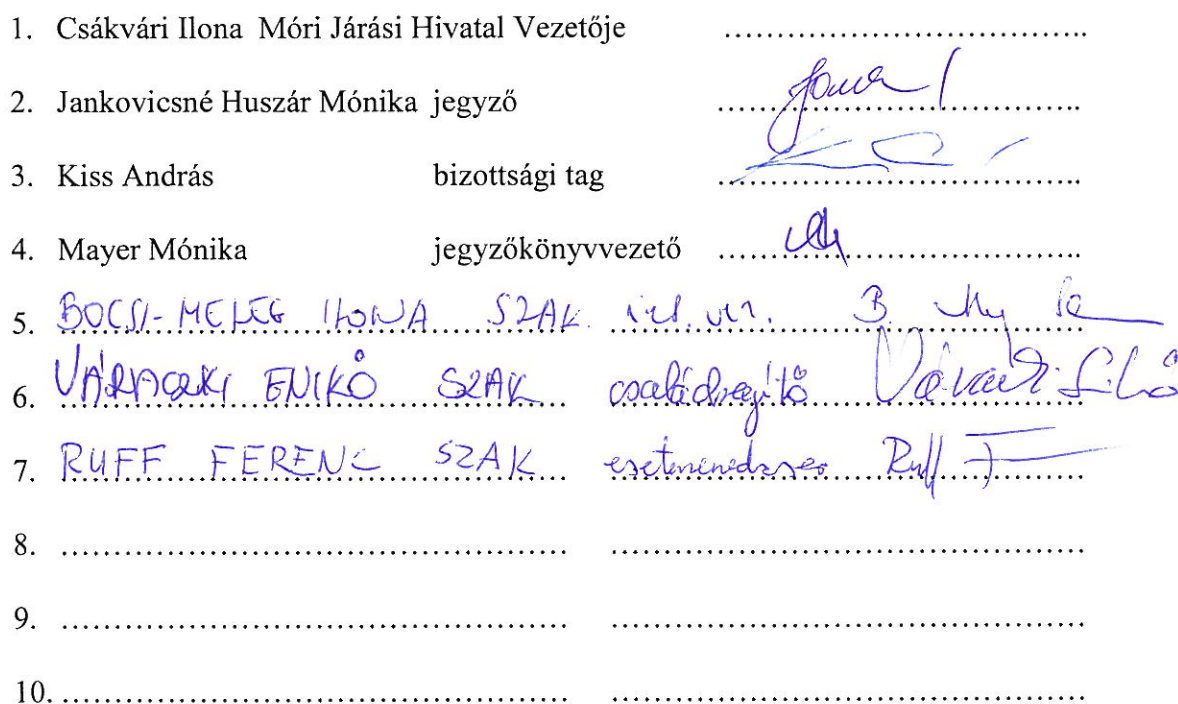 1. Csákvári Ilona Móri Járási Hivatal Vezetője ....................................
2. Jankovicsné Huszár Mónika jegyző ....................................
3. Kiss András bizottsági tag ....................................
4. Mayer Mónika jegyzőkönyvvezető ....................................
5. BOCSI-MELEG ILONA SZAK. int. vez. B.
6. VÁRACZKI ENIKŐ SZAK családsegítő
7. RUFF FERENC SZAK esetmenedzser Ruff F
8. .................................................. ..................................................
9. .................................................. ..................................................
10. .................................................. ..................................................